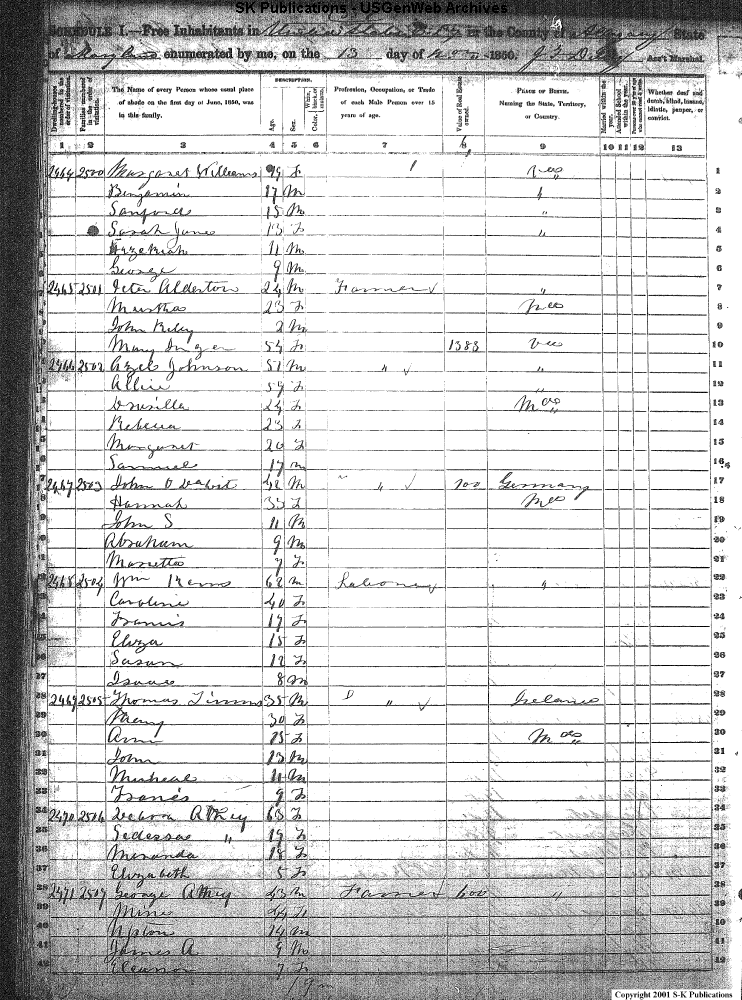 SK Publications - USGenWeb Archives
SCHEDULE I.—Free Inhabitants in in the County of Allegany State
of Maryland enumerated by me, on the 13 day of 1850. Ass't Marshal.
Dwelling-houses numbered in the order of visitation.
Families numbered in the order of visitation.
The Name of every Person whose usual place of abode on the first day of June, 1850, was in this family.
DESCRIPTION.
Age.
Sex.
White, Color, black, or mulatto.
Profession, Occupation, or Trade of each Male Person over 15 years of age.
Value of Real Estate owned.
PLACE OF BIRTH. Naming the State, Territory, or Country.
Married within the year.
Attended School within the year.
Persons over 20 y'rs of age who cannot read & write.
Whether deaf and dumb, blind, insane, idiotic, pauper, or convict.
1 2 3 4 5 6 7 8 9 10 11 12 13
2464 2500 Margaret Williams F 1
Benjamin 17 M 2
Sanford 15 M " 3
Sarah Jane 13 F " 4
Hezekiah 11 M 5
George 9 M 6
2465 2501 Peter Alderton 24 M Farmer " 7
Martha 23 F 8
John Riley 2 M 9
Mary 54 F 1388 10
2466 2502 Johnson 51 M " " 11
54 F " 12
Drusilla 24 F 13
Rebecca 23 F 14
Margaret 20 F 15
Samuel 17 M 16
2467 2503 John 42 M " 700 Germany 17
Hannah 35 F 18
John S 11 M 19
Abraham 9 M 20
Marietta 7 F 21
2468 2504 Wm 62 M Laborer " 22
Caroline 40 F 23
Francis 17 F 24
Eliza 15 F 25
Susan 12 F 26
Isaac 8 M 27
2469 2505 Thomas Timms 35 M " Ireland 28
Mary 30 F 29
Ann 15 F 30
John 13 M 31
Micheal 11 M 32
Francis 9 F 33
2470 2506 Athey 63 F 34
" 19 F 35
Miranda 18 F 36
Elizabeth 5 F 37
2471 2507 George Athey 43 M Farmer 600 " 38
44 F 39
Upton 14 M 40
James A 9 M 41
Eleanor 7 F 42
Copyright 2001 S-K Publications